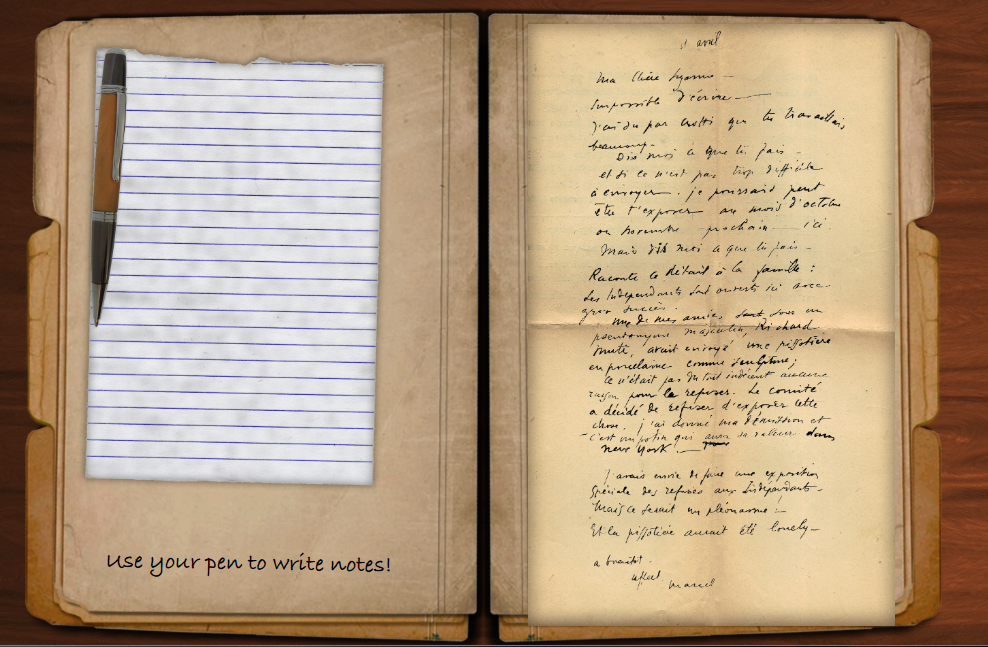 Use your pen to write notes!
11 avril
Ma chère Suzanne —
Impossible d'écrire —
J'ai su par Crotti que tu travaillais
beaucoup.
Dis moi ce que tu fais —
et si ce n'est pas trop difficile
à envoyer. je pourrais peut
être t'exposer au mois d'octobre
ou Novembre — prochain — ici.
Mais dis moi ce que tu fais —
Raconte ce détail à la famille :
Les Indépendants sont ouverts ici avec
gros succès.
Une de mes amies sous un
pseudonyme masculin, Richard
Mutt, avait envoyé une pissotière
en porcelaine comme sculpture;
Ce n'était pas du tout indécent aucune
raison pour la refuser. Le comité
a décidé de refuser d'exposer cette
chose. J'ai donné ma démission et
c'est un potin qui aura sa valeur dans
New York. —
J'avais envie de faire une exposition
spéciale des refusés aux Indépendants —
Mais ce serait un pléonasme! —
Et la pissotière aurait été lonely —
à bientôt.
affect
Marcel